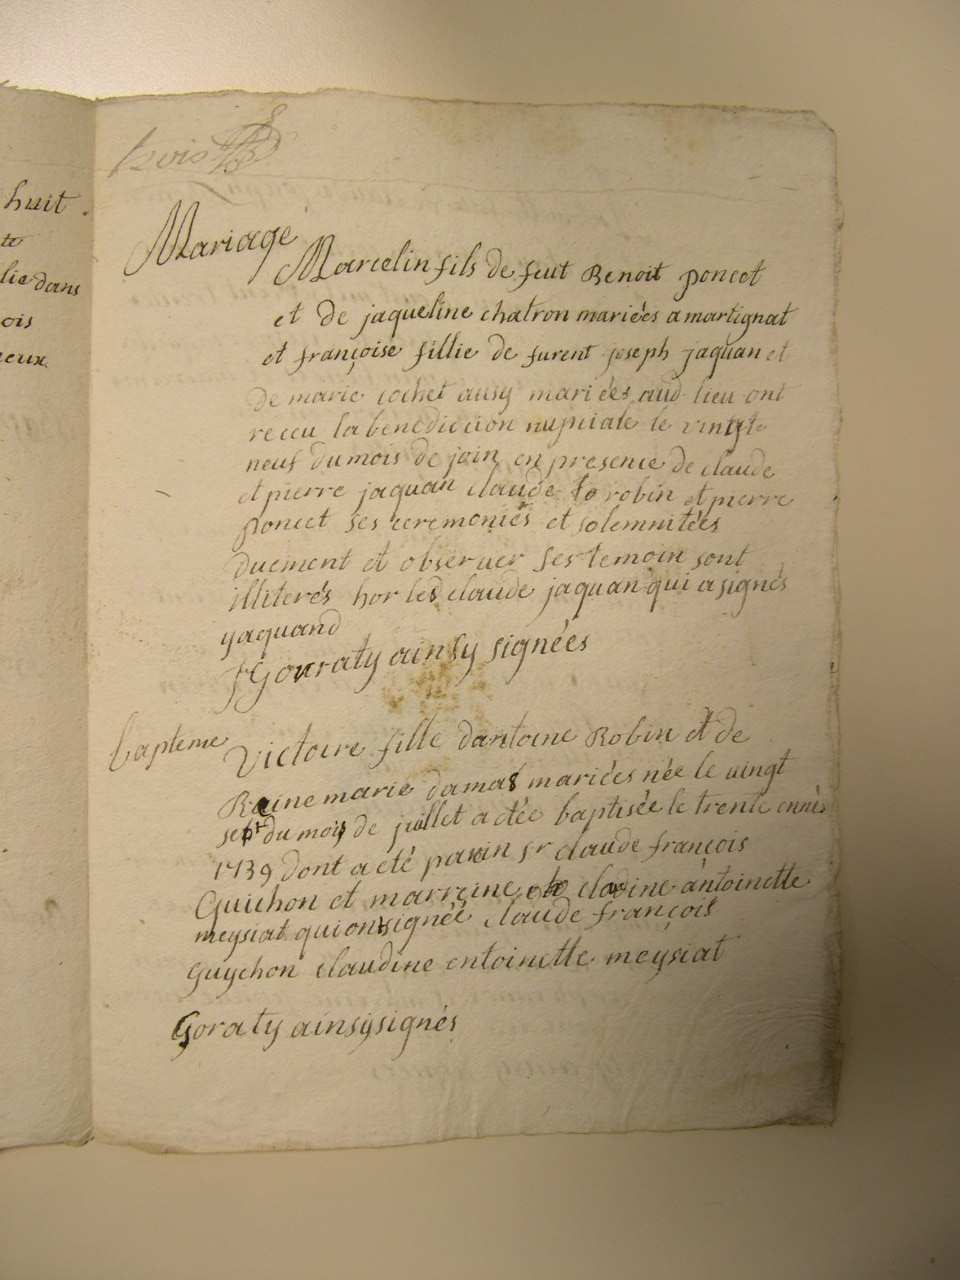 huit
te
lie dans
ois
eux
trois
Mariage
Marcelin fils de feut Benoit poncet
et de jaqueline chatron mariées a martignat
et françoise fillie de furent joseph jaquan et
de marie cochet ausy mariées aud lieu ont
receu la benediction nuptiale le vingte
neuf du mois de join en presence de claude
et pierre jaquan claude robin et pierre
poncet ses ceremonies et solemnitées
duement et observer ses temoin sont
illiterés hor led claude jaquan qui a signés
yaquand
Gouraty ainsy signées
bapteme
Victoire fille dantoine Robin et de
Raine marie damas mariées née le vingt
sept du mois de juillet a etée baptisée le trente
1739 dont a eté parain sr claude françois
Guichon et marreine claudine antoinette
meysiat qui ont signée claude françois
Guychon claudine entoinette meysiat
Goraty ainsy signés